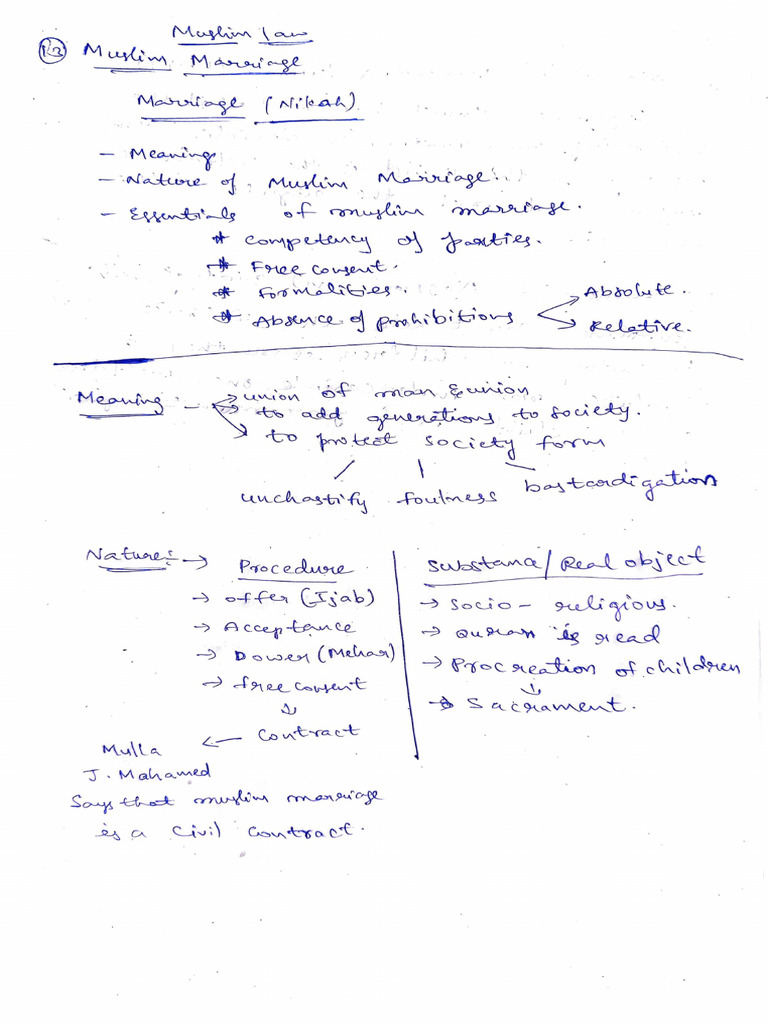 Muslim Law
12 Muslim Marriage
Marriage (Nikah)
- Meaning
- Nature of Muslim Marriage.
- Essentials of muslim marriage.
* Competency of parties.
* Free consent.
* Formalities.
* Absence of prohibitions
Absolute.
Relative.
Meaning - → union of man & union
→ to add generations to society.
→ to protect society form
unchastify foulness bastcordigation
Nature:- → Procedure
→ offer (Ijab)
→ Acceptance
→ Dower (Mehar)
→ free consent
↓
← Contract
Mulla
J. Mahamed
Says that muslim marriage
is a Civil Contract.
Substance/Real object
→ Socio - religious.
→ Quran is read
→ Procreation of children
↓
→ Sacrament.